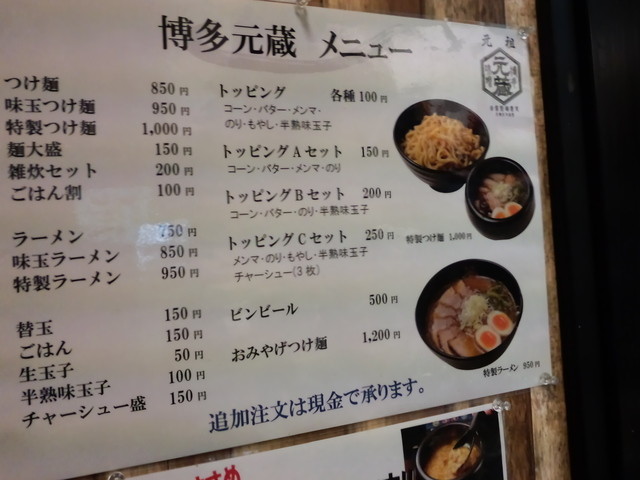 博多元蔵 メニュー
元祖
元蔵
つけ麺 850円
味玉つけ麺 950円
特製つけ麺 1,000円
麺大盛 150円
雑炊セット 200円
ごはん割 100円
ラーメン 750円
味玉ラーメン 850円
特製ラーメン 950円
替玉 150円
ごはん 150円
生玉子 50円
半熟味玉子 100円
チャーシュー盛 150円
トッピング 各種100円
コーン・バター・メンマ・
のり・もやし・半熟味玉子
トッピングAセット 150円
コーン・バター・メンマ・のり
トッピングBセット 200円
コーン・バター・のり・半熟味玉子
トッピングCセット 250円
メンマ・のり・もやし・半熟味玉子
チャーシュー(3枚)
ビンビール 500円
おみやげつけ麺 1,200円
特製つけ麺 1,000円
特製ラーメン 950円
追加注文は現金で承ります。
すめ